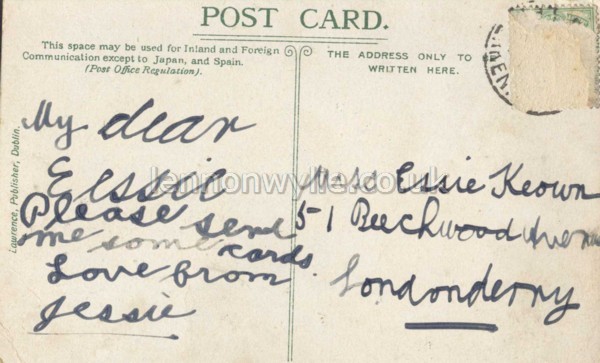 POST CARD.
This space may be used for Inland and Foreign
Communication except to Japan, and Spain.
(Post Office Regulation).
THE ADDRESS ONLY TO BE
WRITTEN HERE.
Lawrence, Publisher, Dublin.
My dear
Essie
Please send
me some cards
Love from
Jessie
Miss Essie Keown
51 Beechwood Avenue
Londonderry
lennonwylie.co.uk